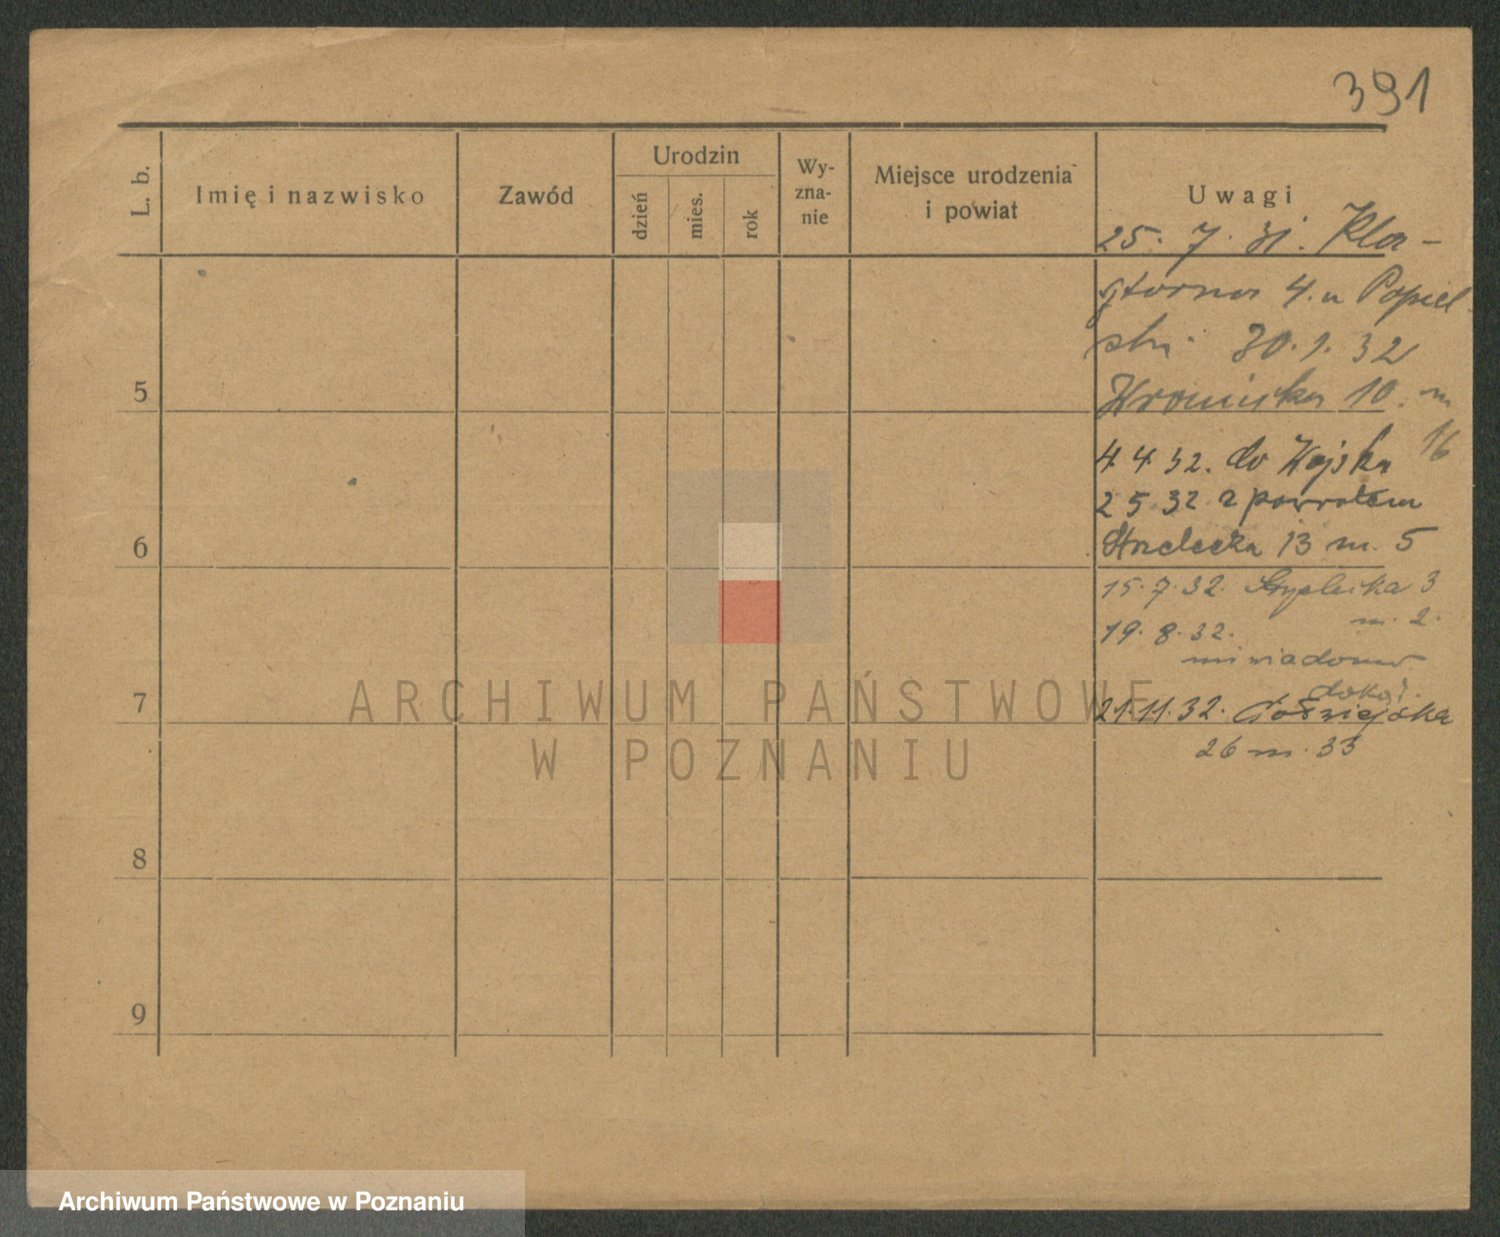 391
L. b.
Imię i nazwisko
Zawód
Urodzin
dzień
mies.
rok
Wy-
zna-
nie
Miejsce urodzenia
i powiat
Uwagi
25. 7. 31. Kla-
sztorna 4. u Popiel
ski 30.1.32
Wroniecka 10. m
16
4 4 32. do Wojska
2 5 32 z powrotem
Strzelecka 13 m. 5
15.7.32. 3
m. 2.
19.8.32.
niewiadomo
dokąd.
21.11.32.
26 m. 33
5
6
7
8
9
ARCHIWUM PAŃSTWOWE
W POZNANIU
Archiwum Państwowe w Poznaniu